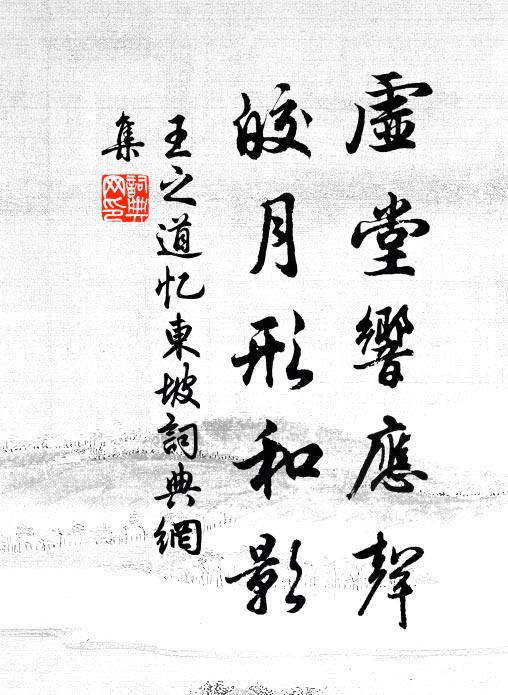 虛堂響應聲
皎月形和影
王之道忆東坡詞典網
集
詞典网印